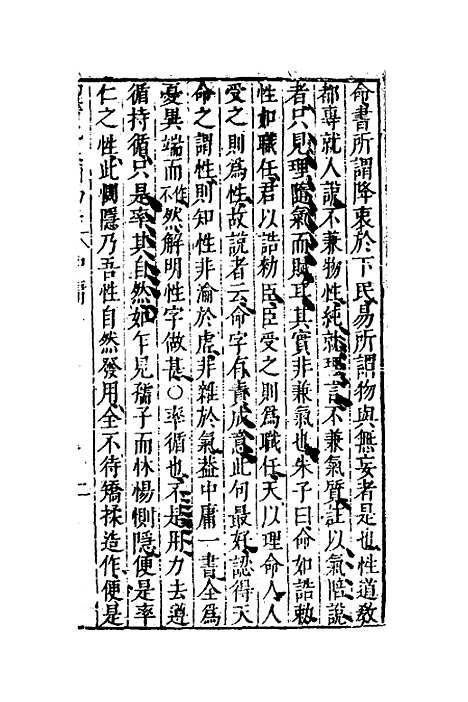 命書所謂降衷於下民易所謂物與無妄者是也性道教
都專就人說不兼物性純就理言不兼氣質註以氣陪說
者只見理隨氣而賦耳其實非兼氣也朱子曰命如誥勅
性如職任君以誥勅臣臣受之則為職任天以理命人人
受之則為性故說者云命字有責成意此句最好認得天
命之謂性則知性非淪於虛非雜於氣益中庸一書全為
憂異端而作不然解明性字做甚○率循也不是用力去遵
循持循只是率其自然如乍見孺子而怵惕惻隱便是率
仁之性此惻隱乃吾性自然發用全不待矯揉造作便是